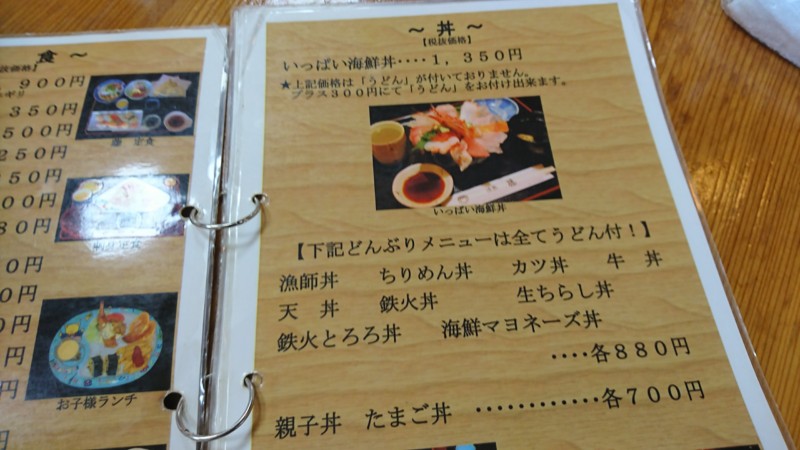 食 ～
抜価格】
９００円
ギリ
３５０円
５００円
２５０円
５０円
００円
８０円
０円
円
０円
円
円
円
定食
定食
お子様ランチ
～ 丼 ～
【税抜価格】
いっぱい海鮮丼‥‥１，３５０円
★上記価格は「うどん」が付いておりません。
プラス３００円にて「うどん」をお付け出来ます。
いっぱい海鮮丼
【下記どんぶりメニューは全てうどん付！】
漁師丼 ちりめん丼 カツ丼 牛 丼
天 丼 鉄火丼 生ちらし丼
鉄火とろろ丼 海鮮マヨネーズ丼
‥‥各８８０円
親子丼 たまご丼 ‥‥‥‥‥‥各７００円